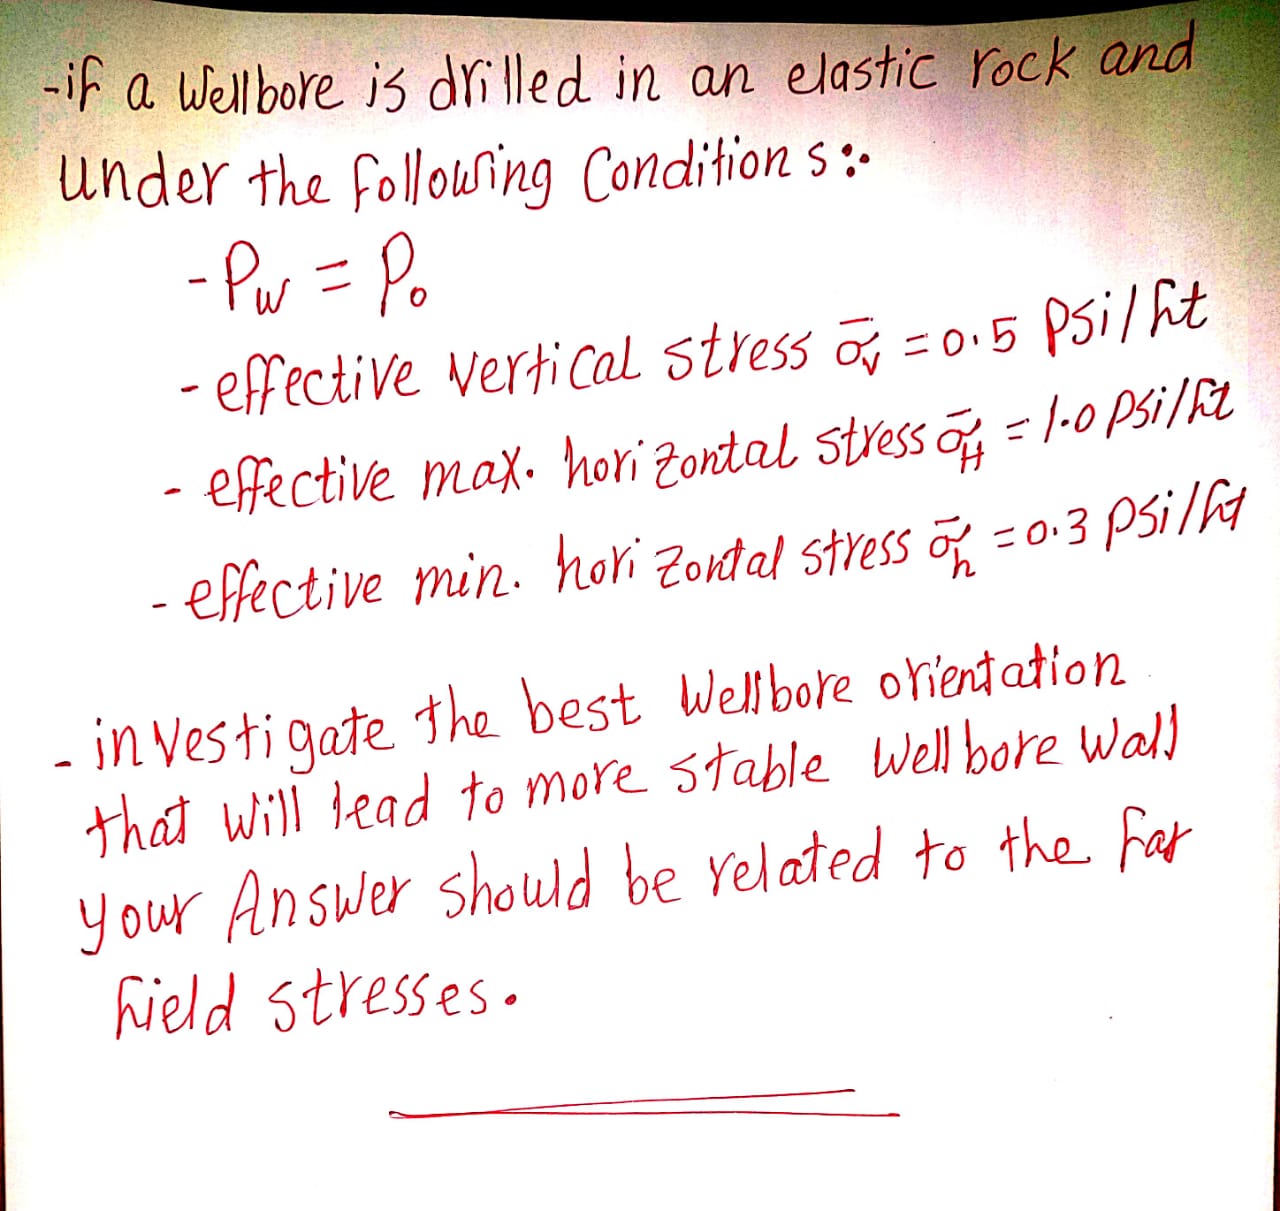 -if a Wellbore is drilled in an elastic rock and
under the following Conditions:-
-Pw = Po
-effective vertical stress σ̄v = 0.5 psi/ft
- effective max. horizontal stress σ̄H = 1.0 psi/ft
- effective min. horizontal stress σ̄h = 0.3 psi/ft
- investigate the best Wellbore orientation
that will lead to more stable Wellbore Wall
your Answer should be related to the far
field stresses.